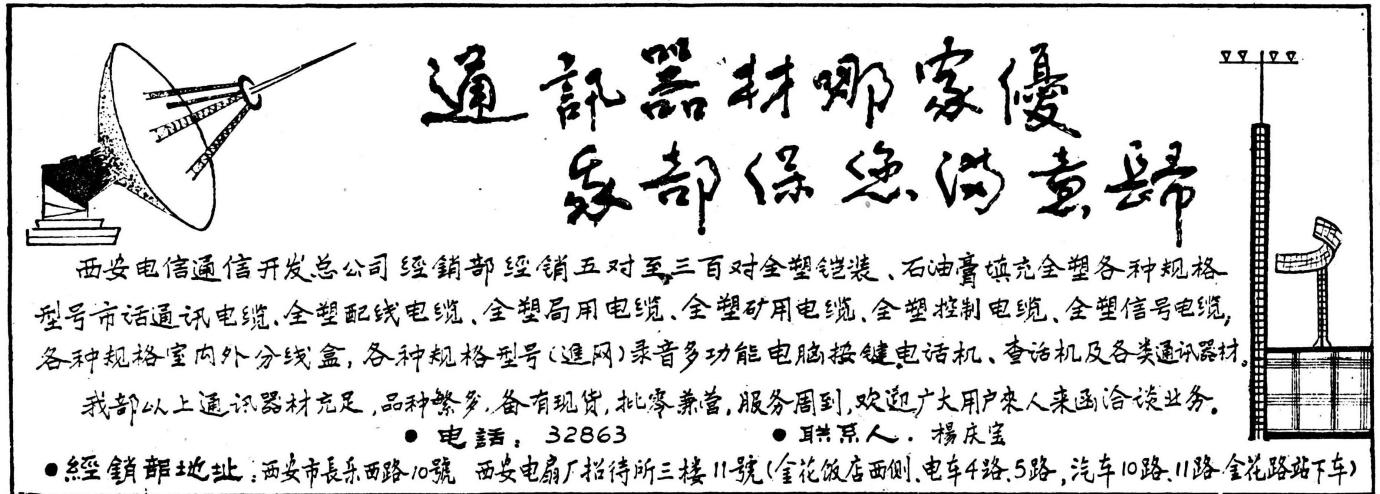 通訊器材哪家優
我部保您满意歸
西安电信通信开发总公司经銷部经销五对至三百对全塑铠装、石油膏填充全塑各种规格
型号市话通讯电缆、全塑配线电缆、全塑局用电缆、全塑矿用电缆、全塑控制电缆、全塑信号电缆,
各种规格室内外分线盒,各种规格型号(進网)录音多功能电脑按键电话机、查话机及各类通讯器材。
我部以上通讯器材充足,品种繁多,备有现货,批零兼营,服务周到,欢迎广大用户来人来函洽谈业务。
● 电話: 32863 ● 联系人. 楊庆宝
● 經銷部地址:西安市長乐西路10號 西安电扇厂招待所三楼11號(金花饭店西侧、电车4路、5路,汽车10路、11路金花路站下车)